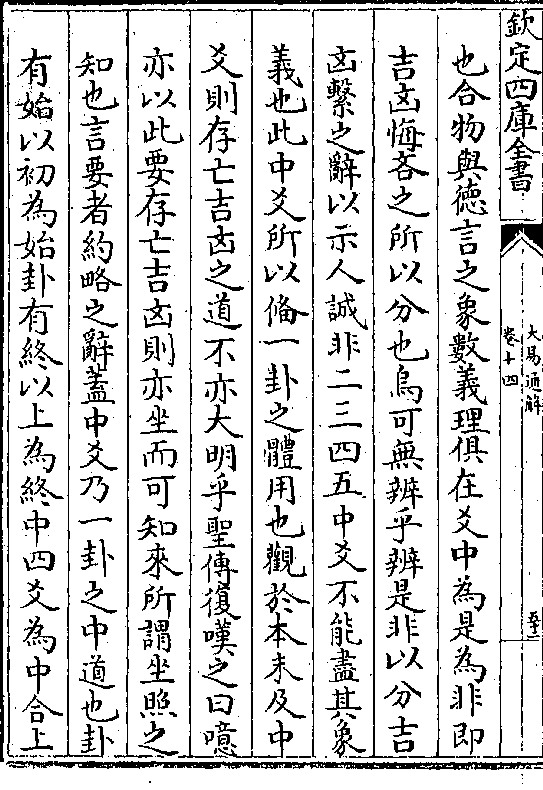 欽定四庫全書
大易通解
卷十四
五十二
也合物與德言之象數義理俱在爻中為是為非即
吉凶悔吝之所以分也烏可無辨乎辨是非以分吉
凶繫之辭以示人誠非二三四五中爻不能盡其象
義也此中爻所以備一卦之體用也觀於本末及中
爻則存亡吉凶之道不亦大明乎聖傳復嘆之曰噫
亦以此要存亡吉凶則亦坐而可知來所謂坐照之
知也言要者約略之辭蓋中爻乃一卦之中道也卦
有始以初為始卦有終以上為終中四爻為中合上